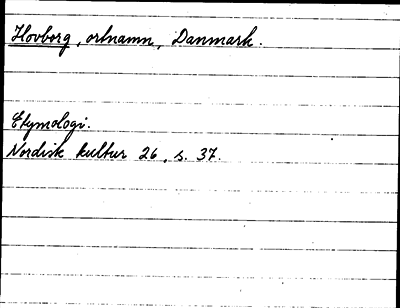 Hovborg, ortnamn, Danmark.
Etymologi.
Nordisk kultur 26, s. 37.